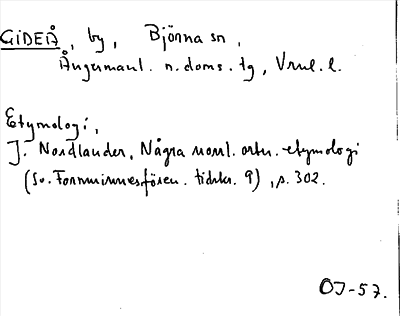 GIDEÅ, by, Björna sn,
Ångermanl. n. doms. tg, Vnrl. l.
Etymologi,
J. Nordlander, Några norrl. ortn. etymologi
(Sv. Fornminnesfören. tidskr. 9), s. 302.
OJ-57.